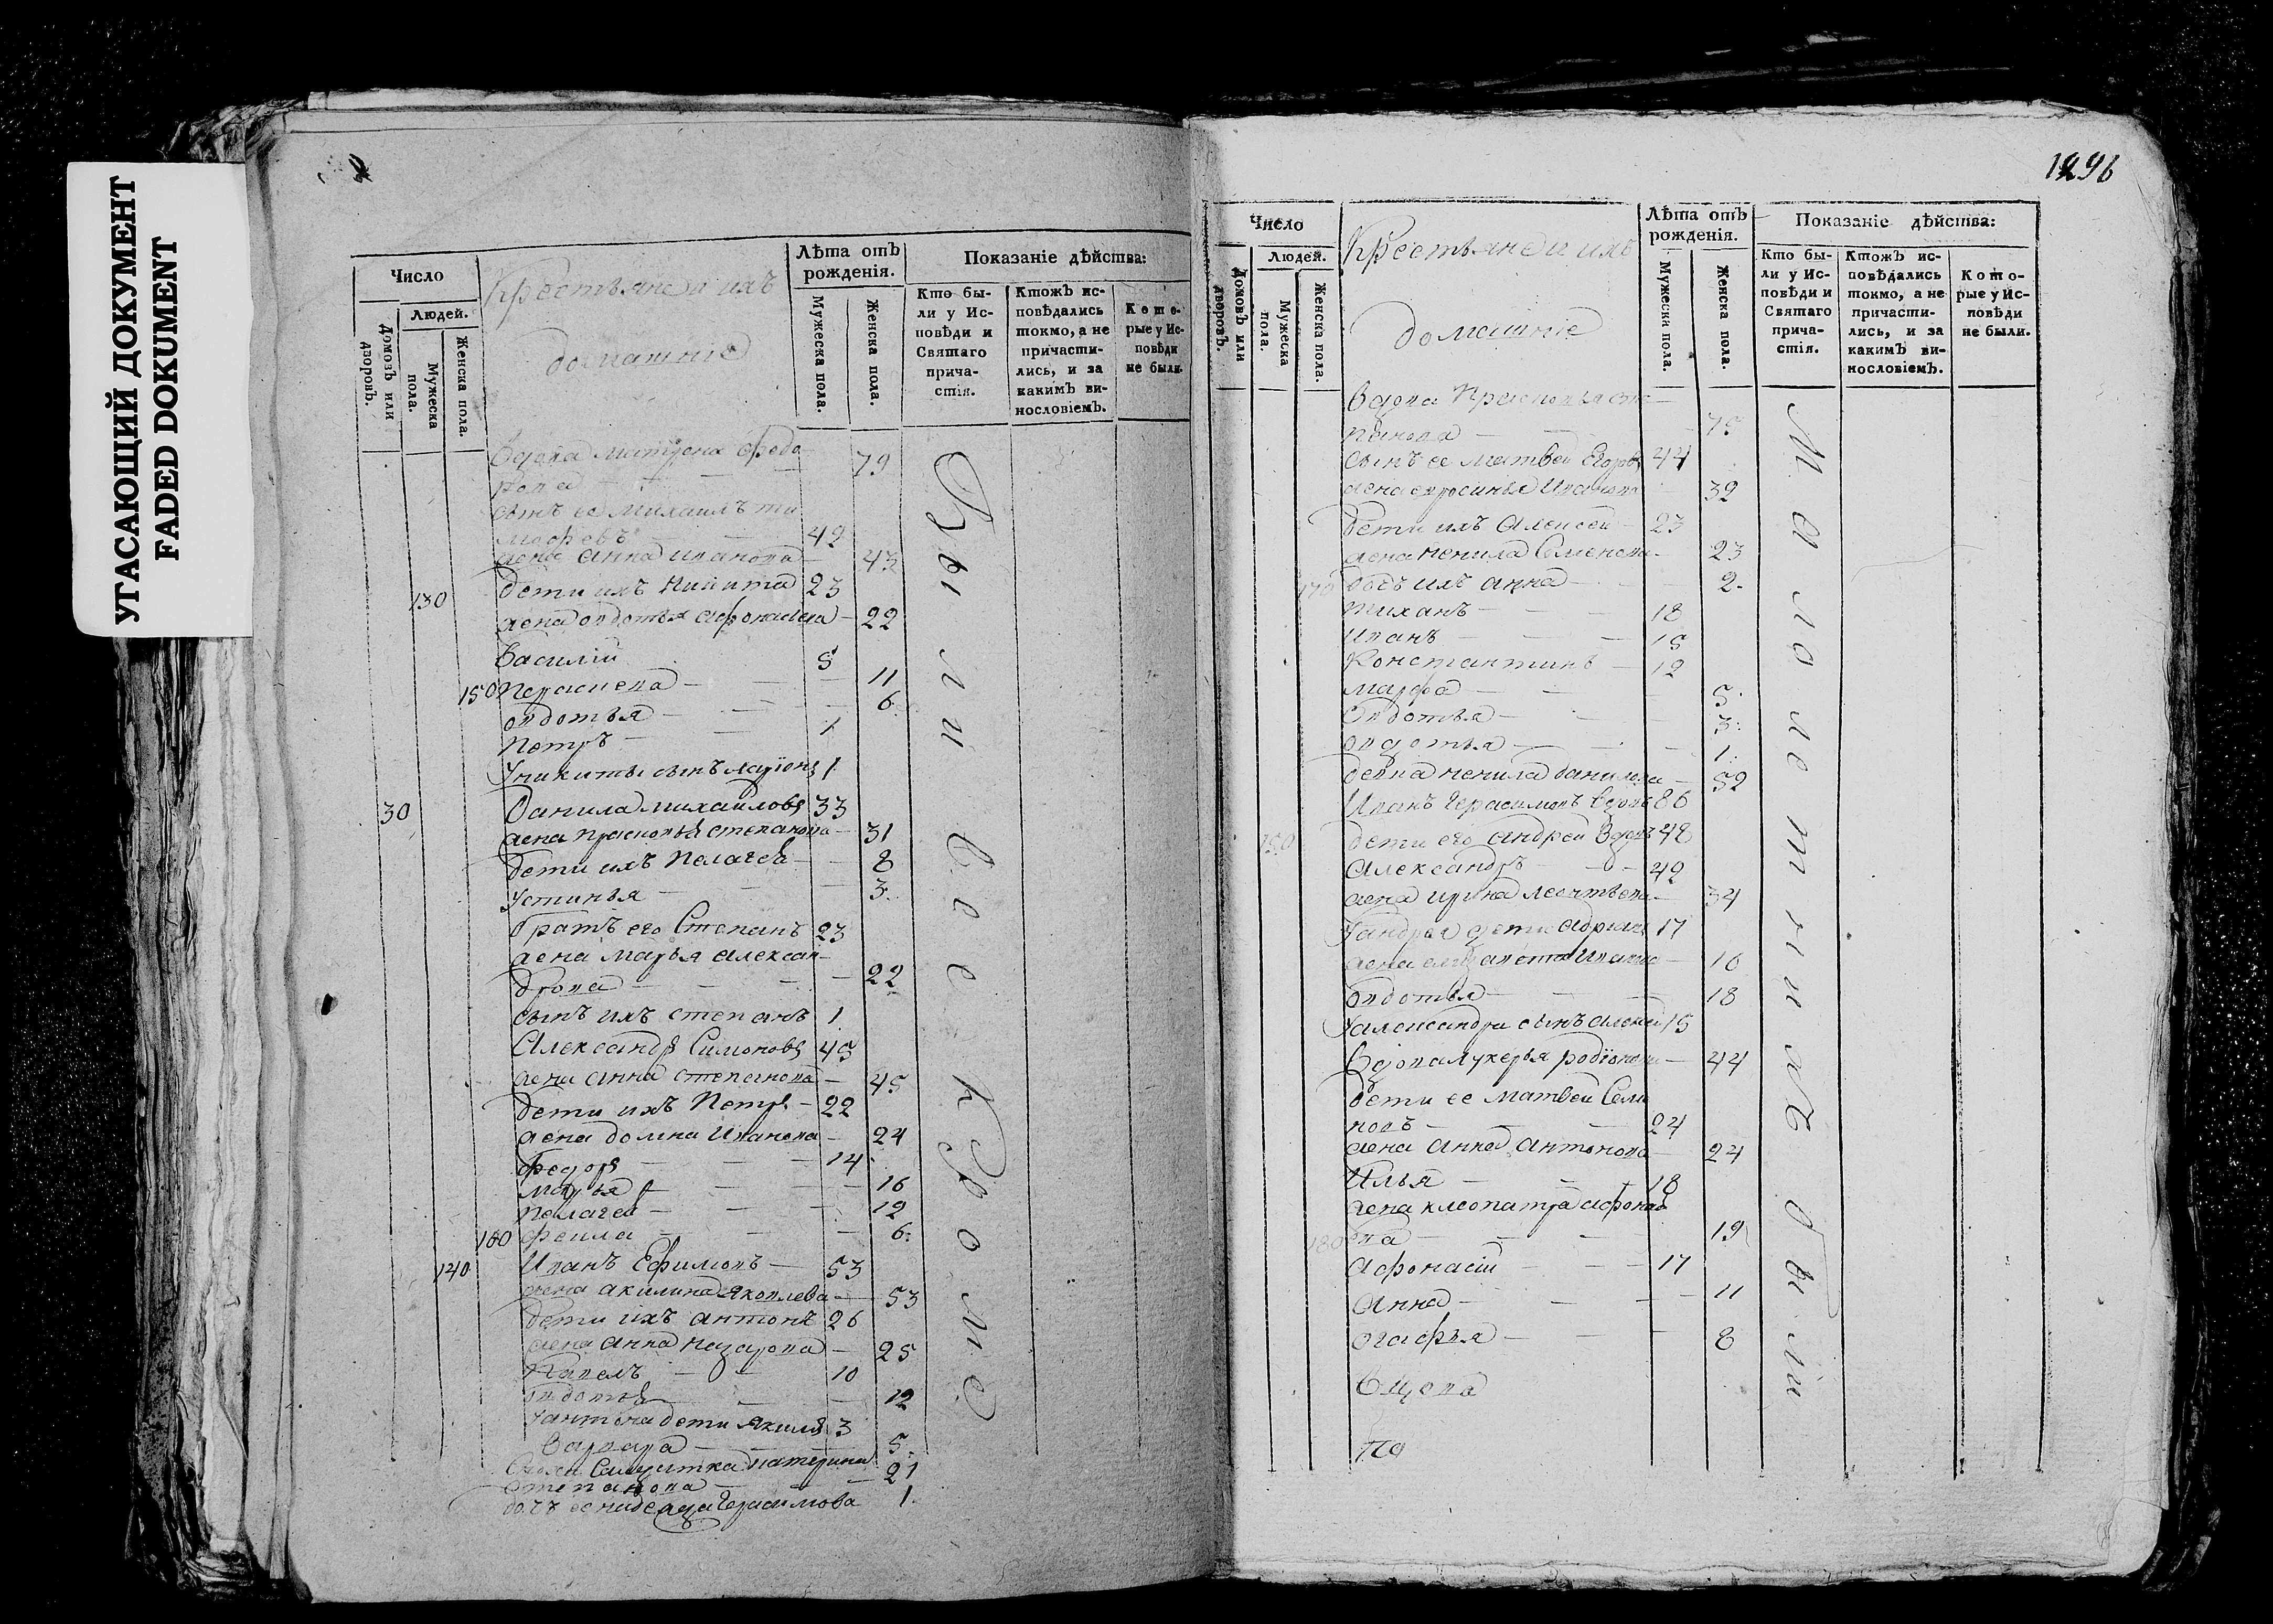 УГАСАЮЩИЙ ДОКУМЕНТ
FADED DOKUMENT
Число
Людей.
Домовъ или дворовъ.
Мужеска пола.
Женска пола.
Крестьяне и ихъ
домашніе
Лѣта отъ рожденія.
Мужеска пола.
Женска пола.
Показаніе дѣйства:
Кто были у Исповѣди и Святаго причастія.
Ктожъ исповѣдались токмо, а не причастились, и за какимъ винословіемъ.
Которые у Исповѣди не были.
вдова матрена федо 79
рова
сынъ ее михаилъ ти
мофѣевъ 49
жена анна иванова 43
130 дети ихъ никита 23
жена овдотья афонасева 22
василій 8
150 Параскева 11
овдотья 6
петръ 1
у никиты сынъ ларіонъ 1
30 Данила михаиловъ 33
жена прасковья степанова 31
дети ихъ пелагея 8
устинья 3
братъ его Степанъ 23
жена марья алексан
дрова 22
сынъ ихъ степанъ 1
Александръ Симоновъ 45
жена анна степанова 45
дети ихъ Петръ 22
жена домна Иванова 24
федоръ 14
марья 16
пелагея 12
160 фекла 6
140 Иванъ Ефимовъ 53
жена акилина яковлева 53
дети ихъ антонъ 26
жена анна назарова 25
Павелъ 10
овдотья 12
у антона дети
3
варвара 5
катерина
степанова 21
дочъ ее
герасимова 1
Были все кроме
1296
Число
Людей.
Домовъ или дворовъ.
Мужеска пола.
Женска пола.
Крестьяне и ихъ
домашніе
Лѣта отъ рожденія.
Мужеска пола.
Женска пола.
Показаніе дѣйства:
Кто были у Исповѣди и Святаго причастія.
Ктожъ исповѣдались токмо, а не причастились, и за какимъ винословіемъ.
Которые у Исповѣди не были.
вдова Прасковья сте
панова 75
сынъ ее матвей Егоровъ 44
жена ефросинья Иванова 39
дети ихъ Алексей 23
жена ненила Семенова 23
170 дочъ ихъ анна 2
тиханъ 18
иванъ 15
Константинъ 12
марфа 5
Овдотья 3
овдотья 1
девка ненила данилова 52
Иванъ Герасимовъ вдовъ 86
150 дети его андрей вдовъ 48
Александръ 42
жена ирина леонтьева 34
у андрея дети адріанъ 17
жена елизавета 16
овдотья 18
у александра сынъ алексей 15
вдова лукерья родіонова 44
дети ее матвеи Семи
новъ 24
жена Анна Антонова 24
Илья 18
жена клеопатра афонас
180 ева 19
афонасій 17
анна 11
огафья 8
малолетнихъ